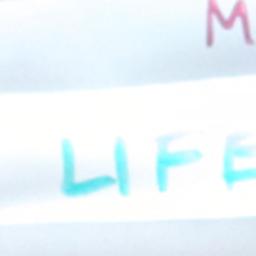 M
LIFE